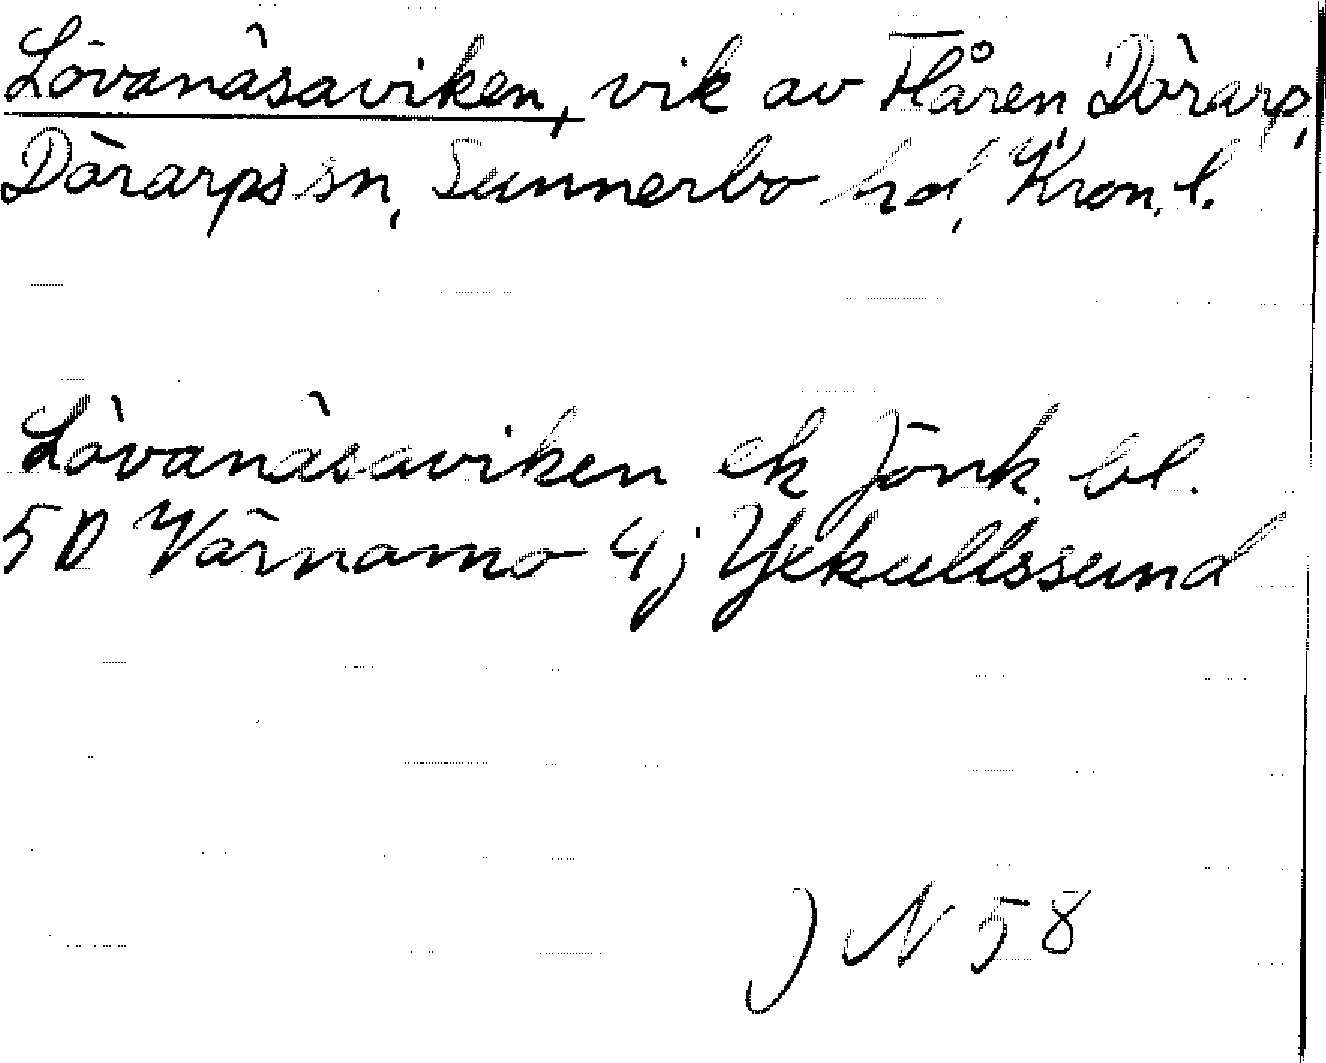 Lövanäsaviken, vik av Flåren, Dörarp,
Dörarps sn, Sunnerbo hd, Kron. l.
Lövanäsaviken ek Jönk. bl.
5D Värnamo 4j Yxkullssund
JN 58